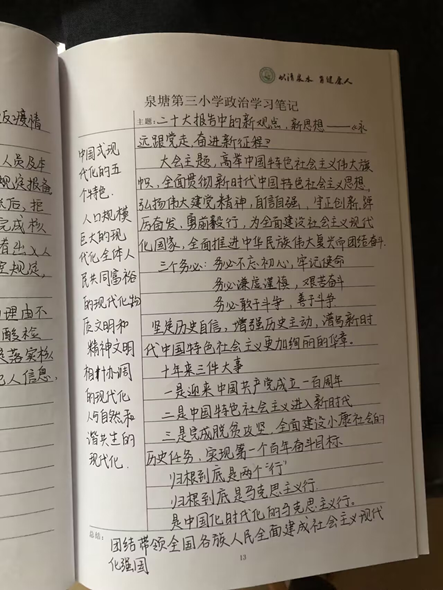 反演情
人员及车
完成核
看出入人
理由不
酸检
落实核
人信息.
以德益水 Œ育达人
泉塘第三小学政治学习笔记
主题:二十大报告中的新观点、新思想——《永
远跟党走,奋进新征程》
大会主题,高举中国特色社会主义伟大旗
帜,全面贯彻新时代中国特色社会主义思想,
弘扬伟大建党精神,自信自强、守正创新,踔
厉奋发、勇前毅行,为全面建设社会主义现代
化国家,全面推进中华民族伟大复兴而团结奋斗.
三个务必:务必不忘初心,牢记使命
务必谦虚谨慎,艰苦奋斗
务必敢于斗争,善于斗争
坚定历史自信,增强历史主动,谱写新时
代中国特色社会主义更加绚丽的华章.
十年来三件大事
一是迎来中国共产党成立一百周年
二是中国特色社会主义进入新时代
三是完成脱贫攻坚,全面建设小康社会的
历史任务,实现第一个百年奋斗目标.
归根到底是两个"行"
归根到底是马克思主义行
是中国化时代化的马克思主义行.
中国式现
代化的五
个特色.
人口规模
巨大的现
代化全体人
民共同富裕
的现代化物
质文明和
精神文明
相协调
的现代化
人与自然和
谐共生的
现代化.
总结:
团结带领全国各族人民全面建成社会主义现代
化强国
13